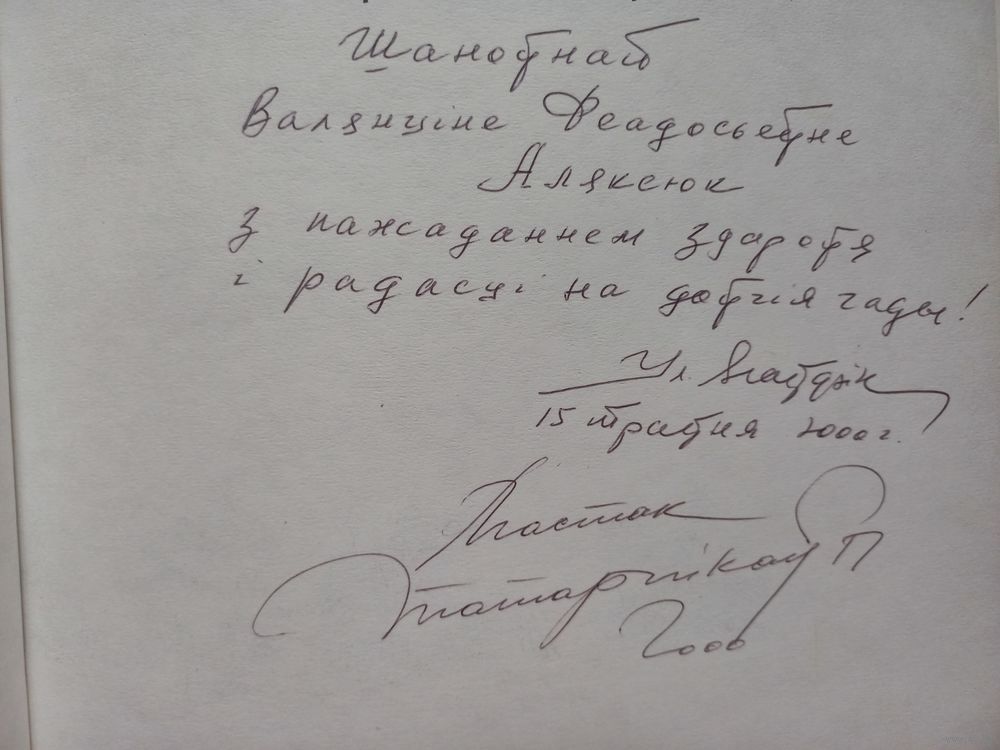 Шаноўнай
Валянціне Феадосьеўне
Аляксюк
З пажаданнем здароўя
і радасці на доўгія гады!
Ул.
15 траўня 2000 г.
Мастак
Татарнікаў П
2000